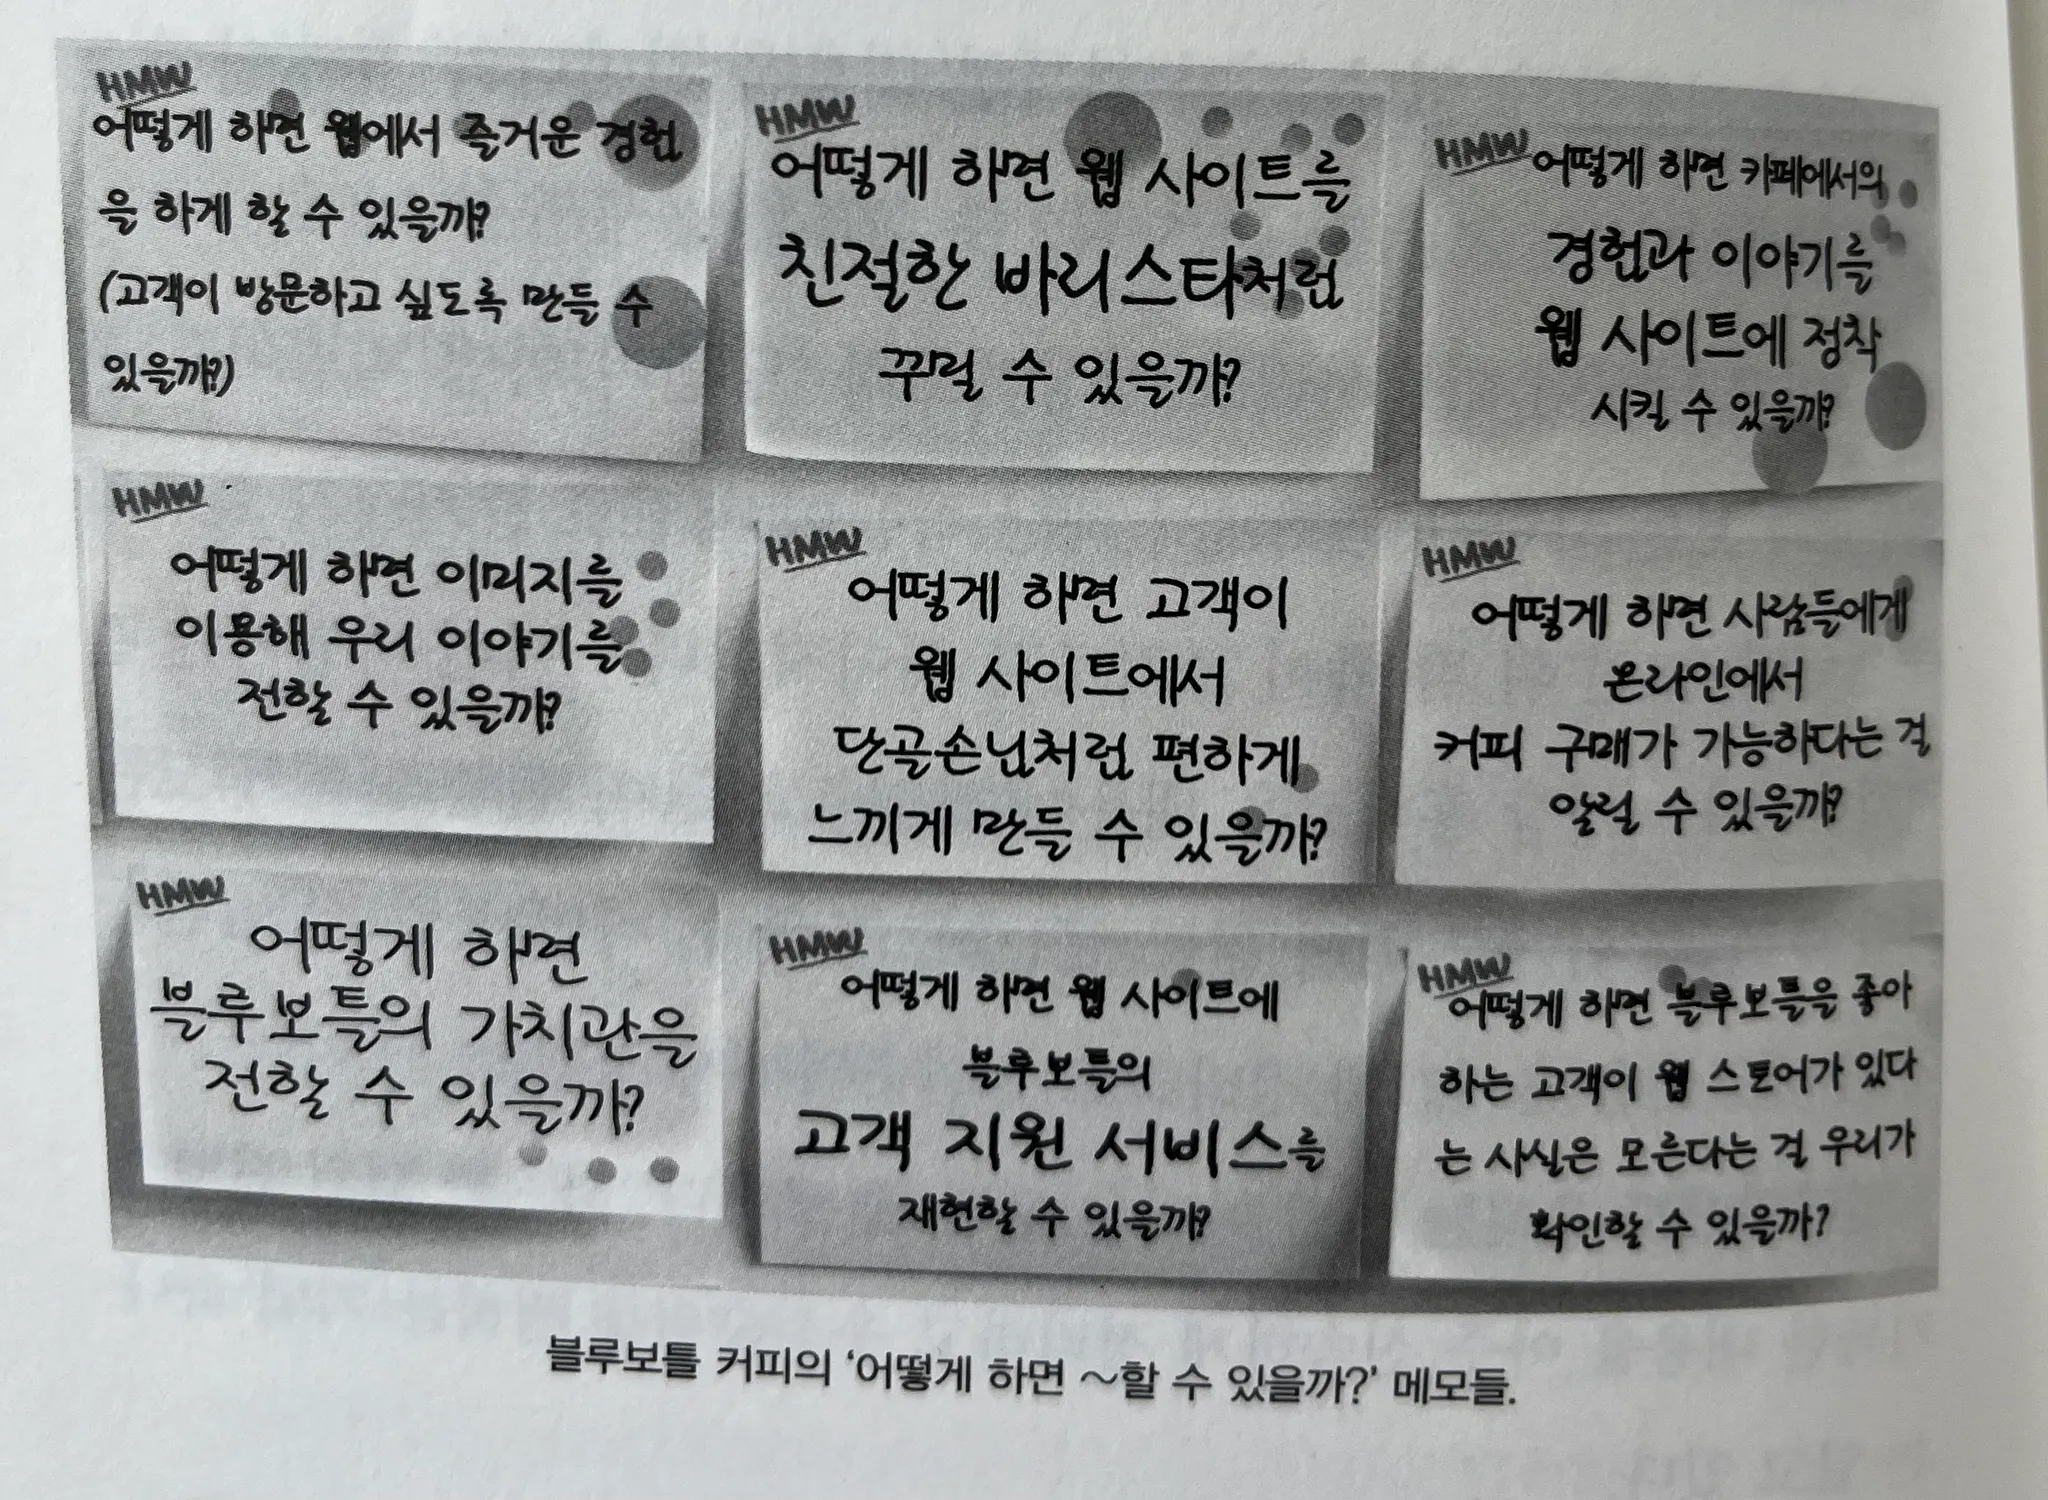 HMW
어떻게 하면 웹에서 즐거운 경험
을 하게 할 수 있을까?
(고객이 방문하고 싶도록 만들 수
있을까?)
HMW
어떻게 하면 웹 사이트를
친절한 바리스타처럼
꾸밀 수 있을까?
HMW
어떻게 하면 카페에서의
경험과 이야기를
웹 사이트에 정착
시킬 수 있을까?
HMW
어떻게 하면 이미지를
이용해 우리 이야기를
전할 수 있을까?
HMW
어떻게 하면 고객이
웹 사이트에서
단골손님처럼 편하게
느끼게 만들 수 있을까?
HMW
어떻게 하면 사람들에게
온라인에서
커피 구매가 가능하다는 걸
알릴 수 있을까?
HMW
어떻게 하면
블루보틀의 가치관을
전할 수 있을까?
HMW
어떻게 하면 웹 사이트에
블루보틀의
고객 지원 서비스를
재현할 수 있을까?
HMW
어떻게 하면 블루보틀을 좋아
하는 고객이 웹 스토어가 있다
는 사실은 모른다는 걸 우리가
확인할 수 있을까?
블루보틀 커피의 ‘어떻게 하면 ~할 수 있을까?’ 메모들.